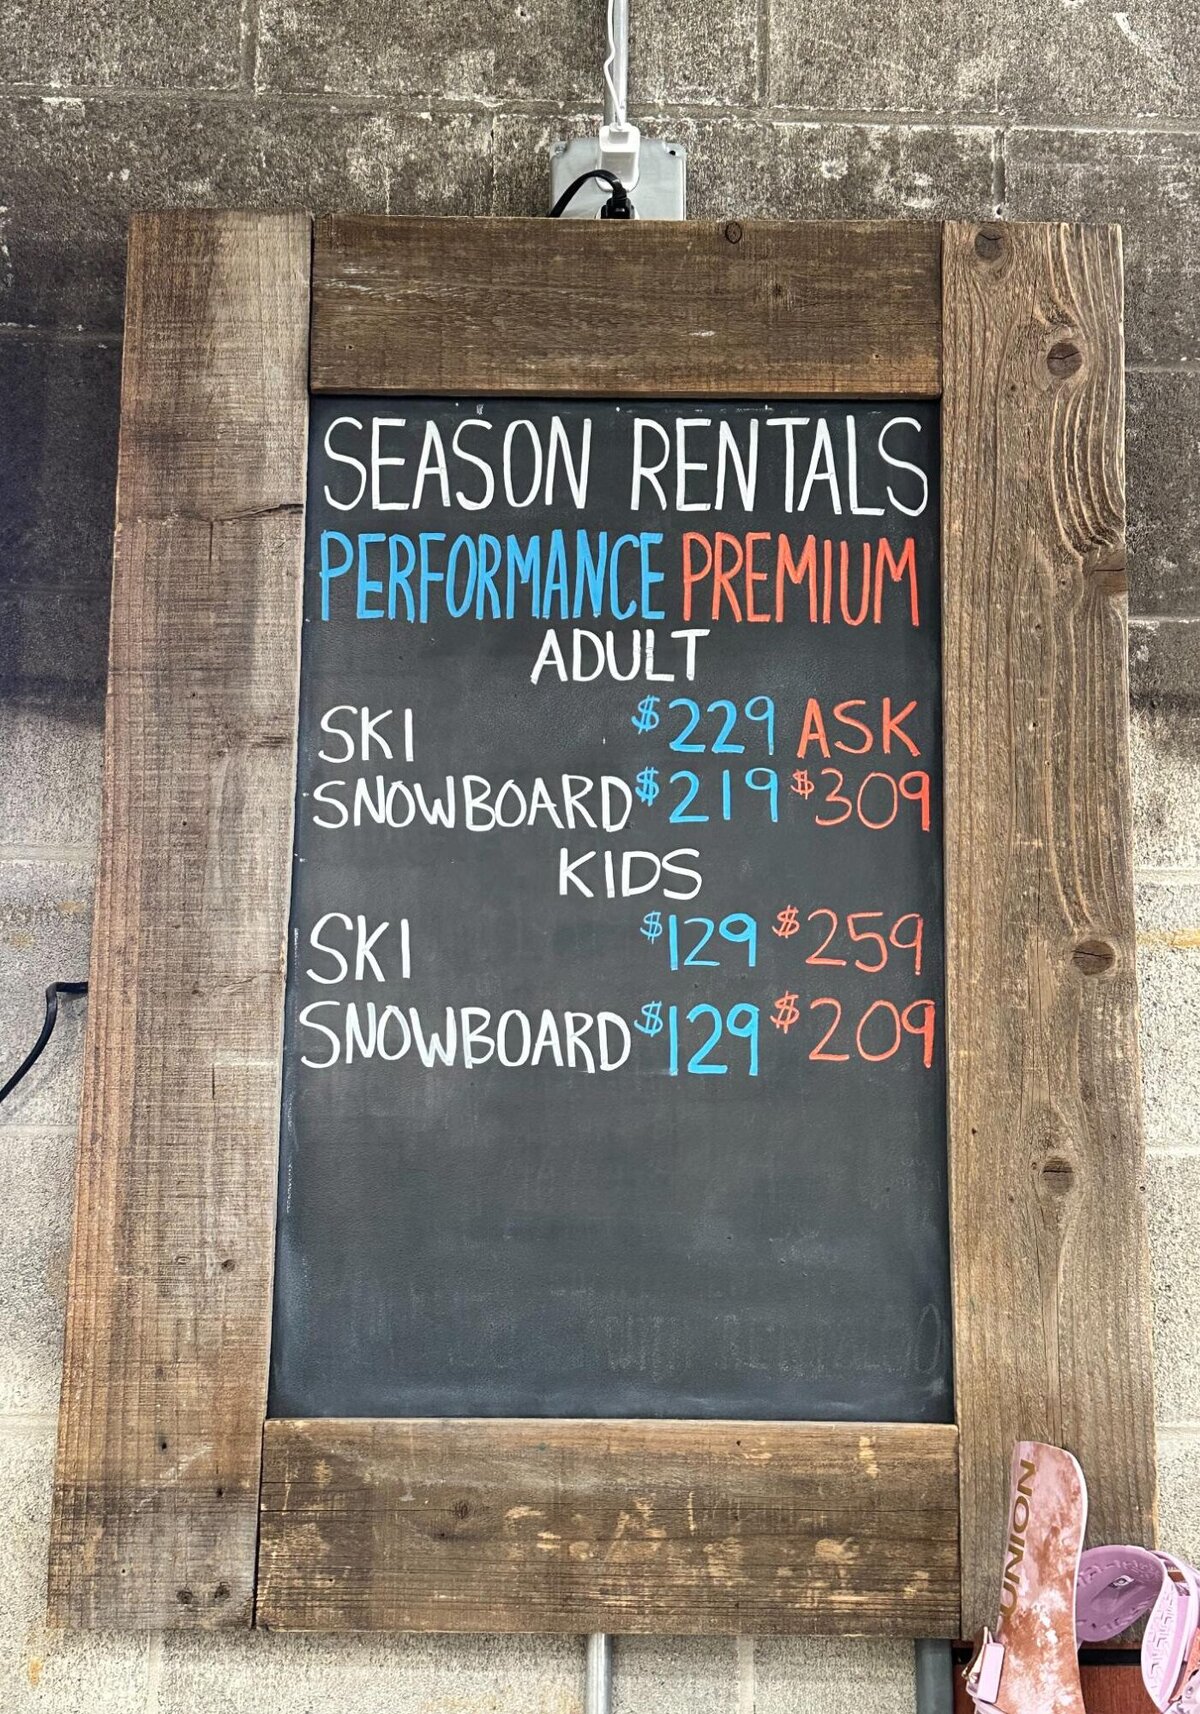 SEASON RENTALS
PERFORMANCE PREMIUM
ADULT
SKI $229 ASK
SNOWBOARD $219 $309
KIDS
SKI $129 $259
SNOWBOARD $129 $209